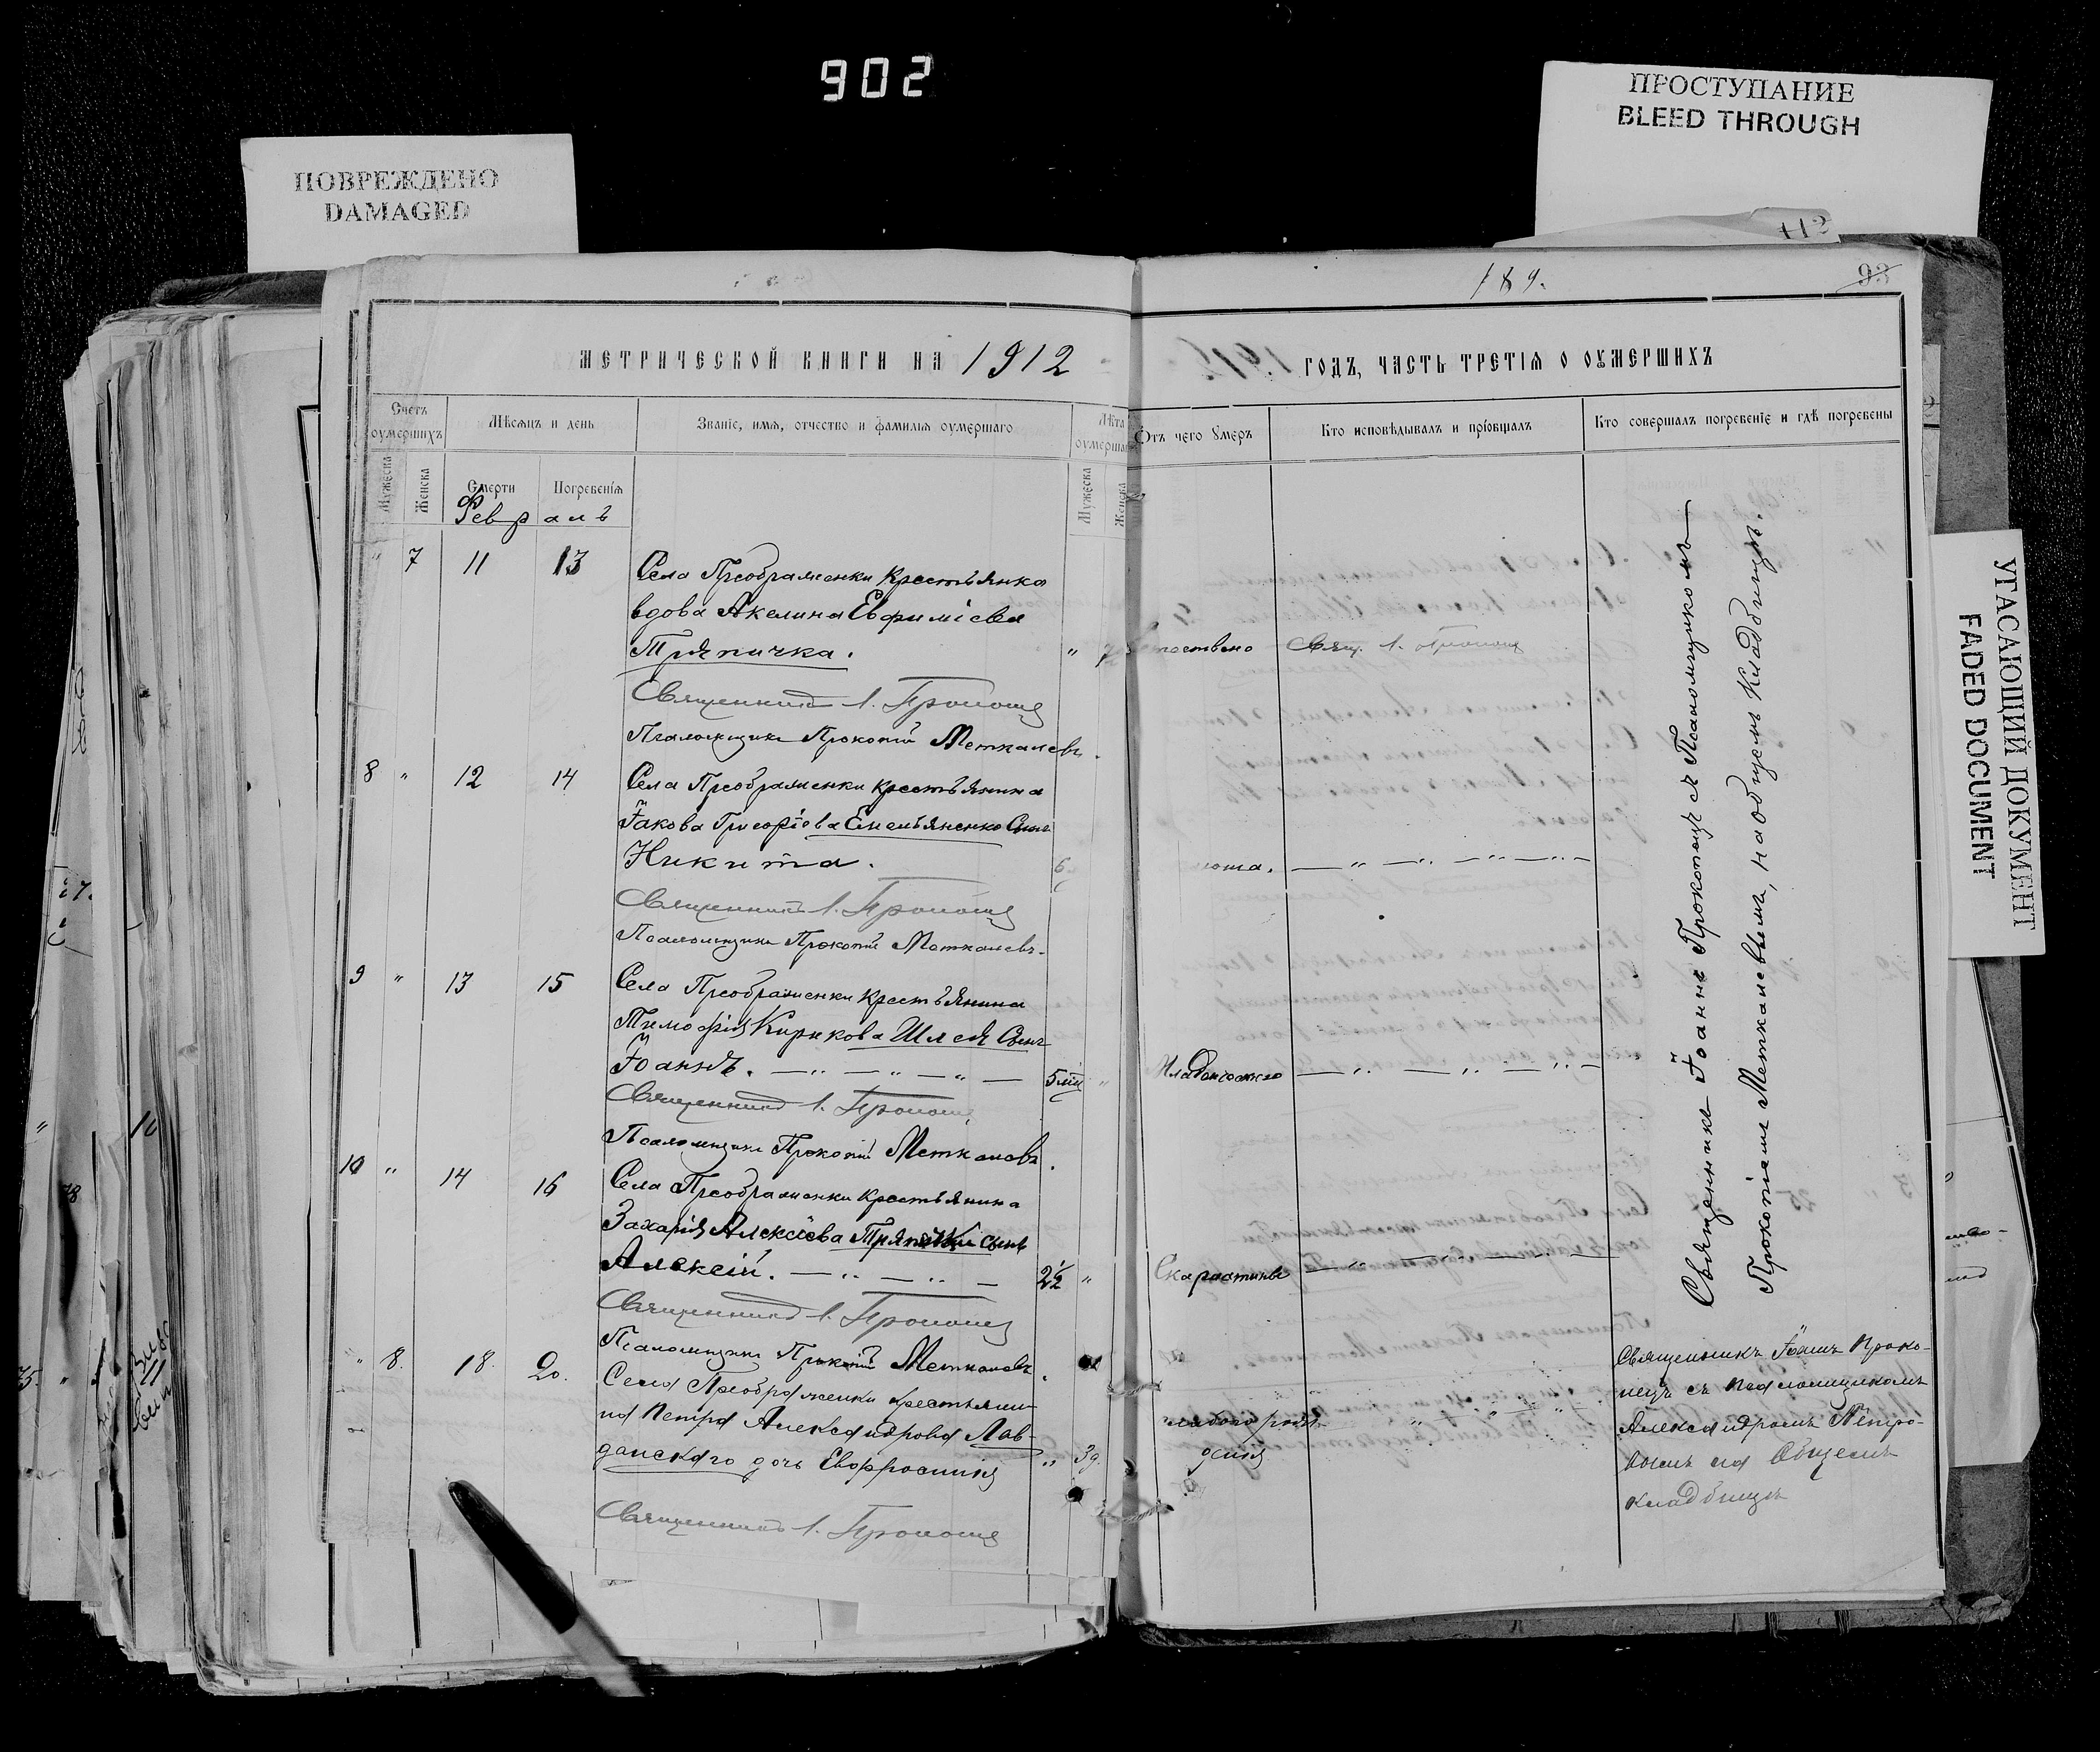 902
ПОВРЕЖДЕНО
DAMAGED
ПРОСТУПАНИЕ
BLEED THROUGH
УГАСАЮЩИЙ ДОКУМЕНТ
FADED DOCUMENT
112
189.
93
МЕТРИЧЕСКОЙ КНИГИ НА 1912
ГОДЪ, ЧАСТЬ ТРЕТІЯ О ОУМЕРШИХЪ
Счетъ оумершихъ
Мѣсяцъ и день
Званіе, имя, отчество и фамилія оумершаго
Лѣта оумершаго
Отъ чего умеръ
Кто исповѣдывалъ и пріобщалъ
Кто совершалъ погребеніе и гдѣ погребены
Мужеска
Женска
Смерти
Погребенія
Мужеска
Женска
Февраль
" 7 11 13 Села Преображенки крестьянка
вдова Акелина Евфиміева
Тряпичка. " Свящ. І. Прокопецъ
Священникъ І. Прокопецъ
Псаломщикъ Прокопій Меткалевъ.
8 " 12 14 Села Преображенки крестьянина
Іакова Григоріева Емельяненко сынъ
Никита. 6
Священникъ І. Прокопецъ
Псаломщикъ Прокопій Меткалевъ.
9 " 13 15 Села Преображенки крестьянина
Тимофія Кирикова Шлея сынъ
Іоаннъ. 5 "
Священникъ І. Прокопецъ
Псаломщикъ Прокопій Меткалевъ.
10 " 14 16 Села Преображенки крестьянина
Захарія Алексіева Тряпички сынъ
Алексій. 2½ " Скарлатины
Священникъ І. Прокопецъ
Псаломщикъ Прокопій Меткалевъ.
" 8. 18. 20. Села Преображенки крестьяни-
на Петра Александрова Лав-
данскаго дочь Евфросинія " 3д.
Священникъ І. Прокопецъ
Священникъ Іоаннъ Прокопецъ съ Псаломщикомъ
Прокопіемъ Меткалевымъ, на общемъ кладбищѣ.
Священникъ Іоаннъ Проко-
пецъ съ псаломщикомъ
Александромъ Петро-
вымъ на общемъ
кладбищѣ